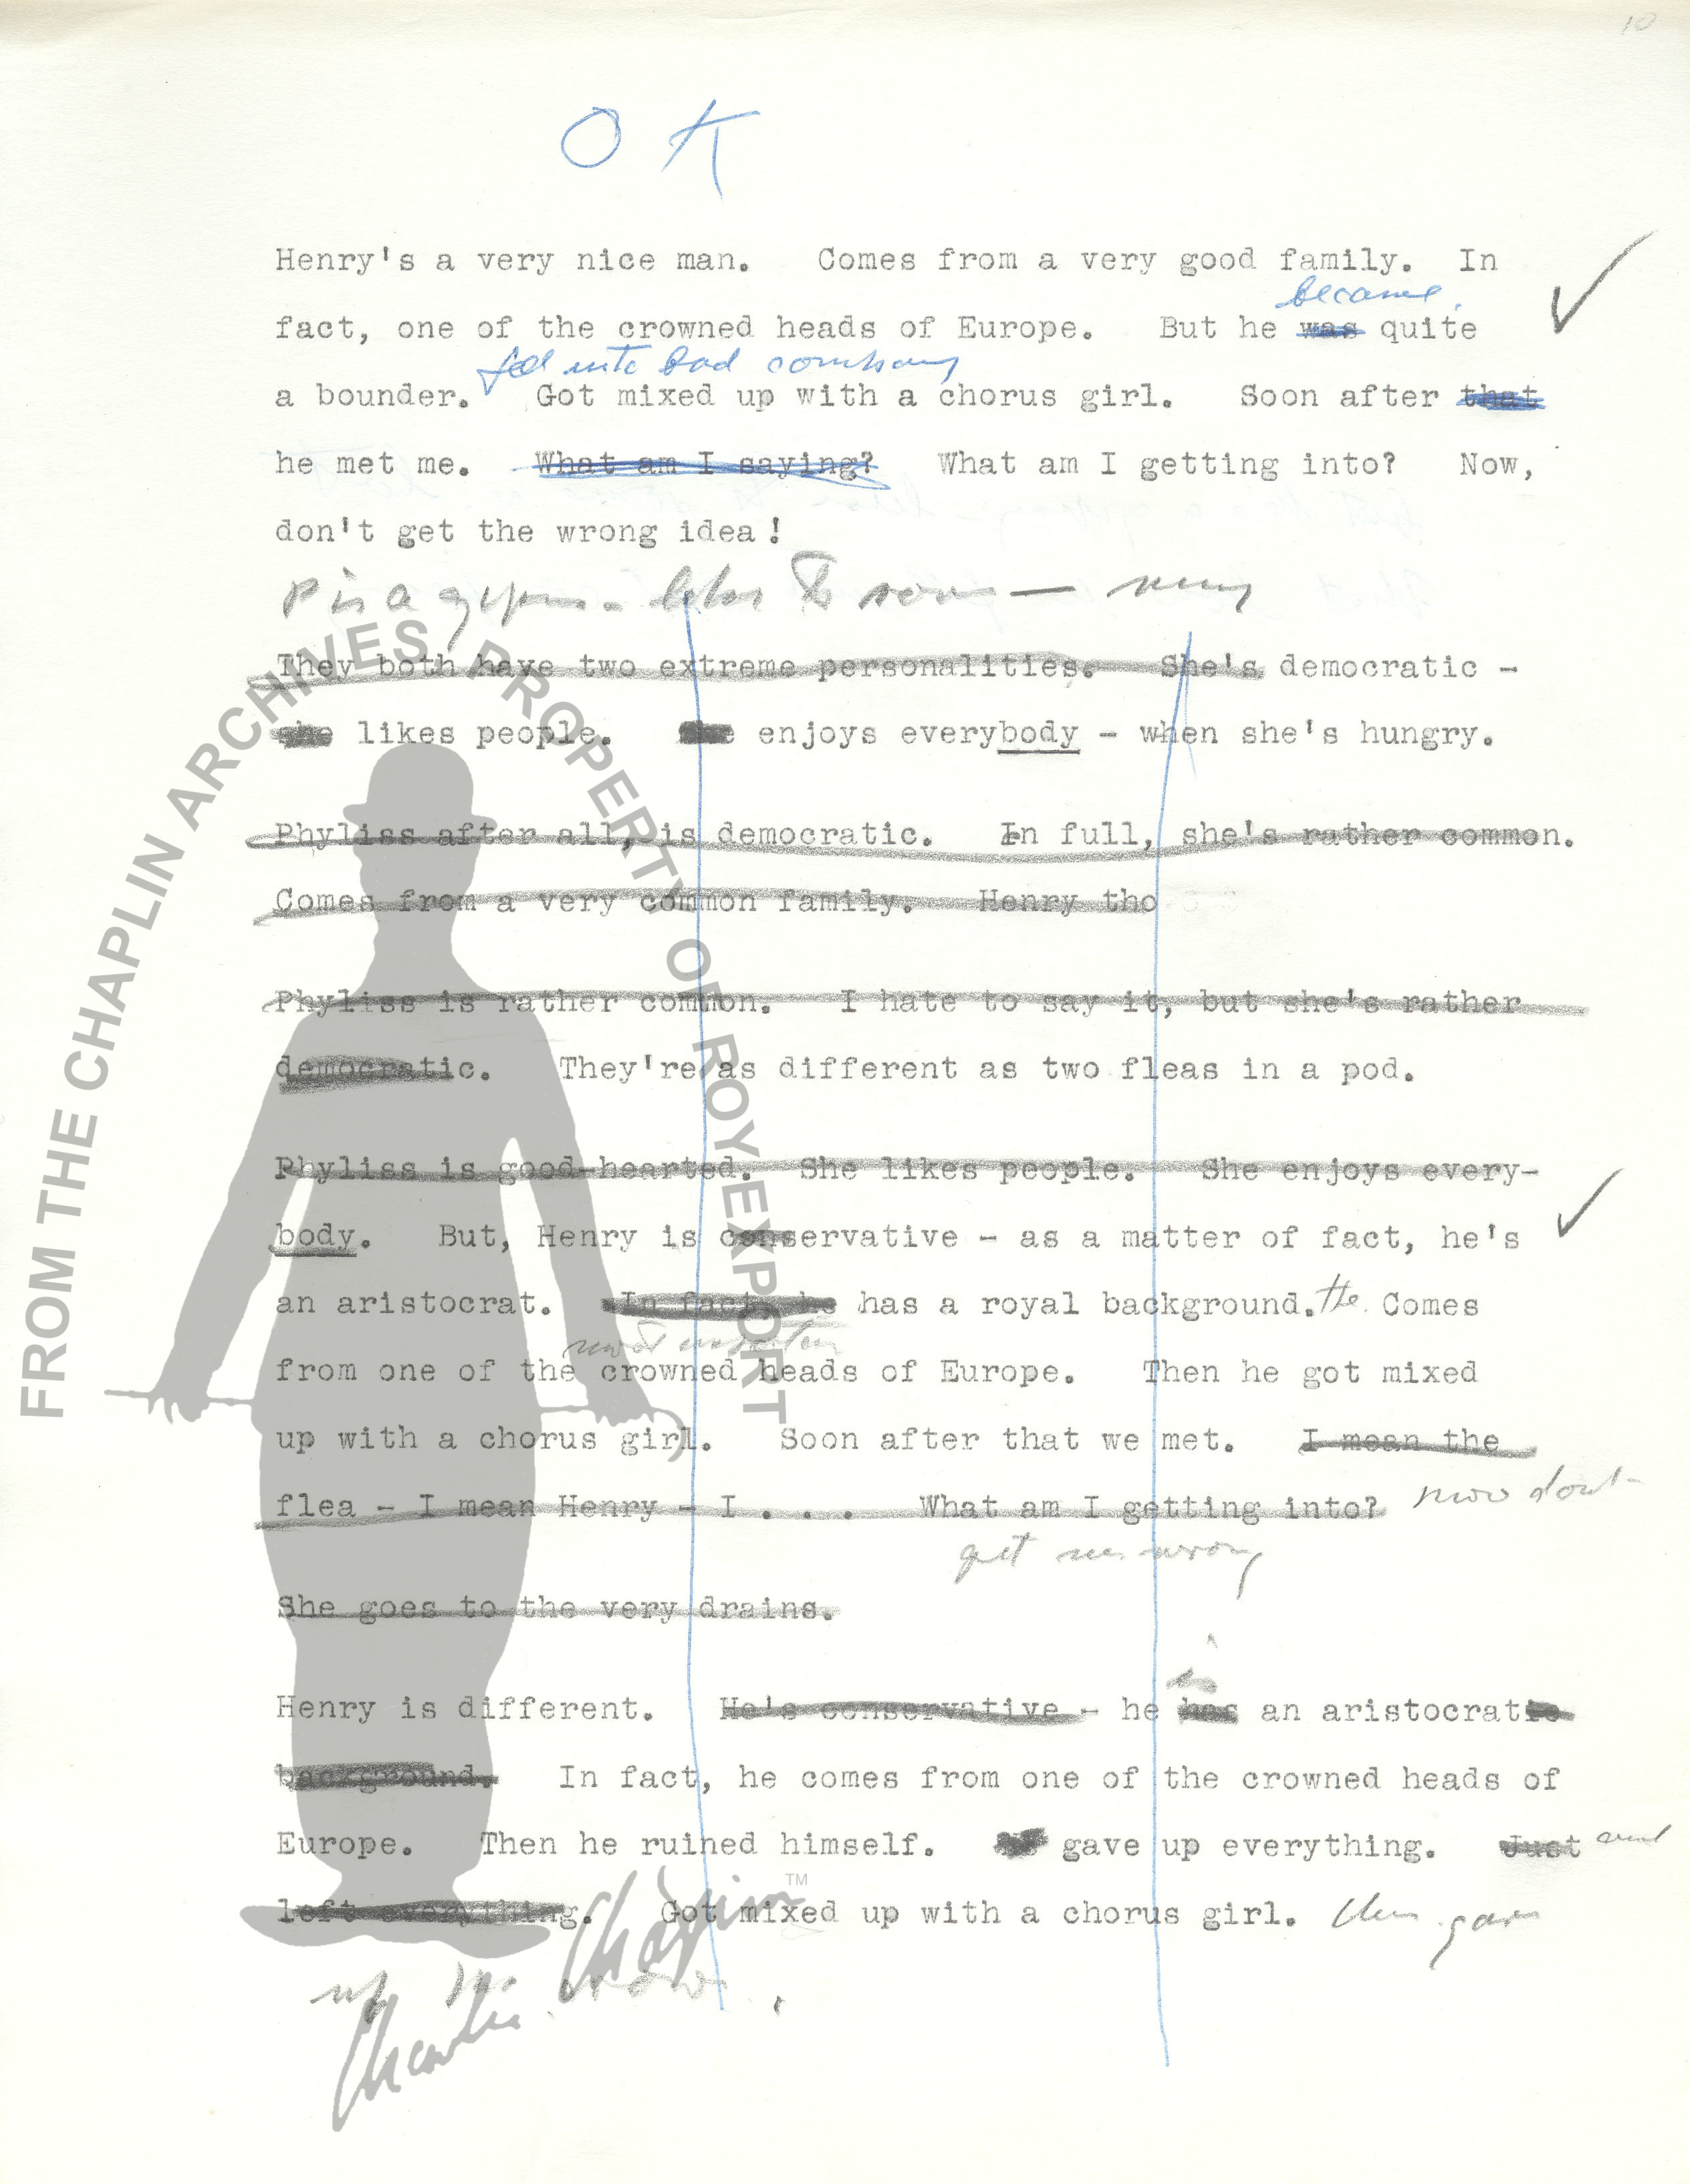 10
O K
Henry's a very nice man. Comes from a very good family. In
became
fact, one of the crowned heads of Europe. But he was quite
fell into bad company
a bounder. Got mixed up with a chorus girl. Soon after that
he met me. What am I saying? What am I getting into? Now,
don't get the wrong idea!
P is a gypsy - likes to
They both have two extreme personalities. She's democratic -
she likes people. She enjoys everybody - when she's hungry.
Phyliss after all, is democratic. In full, she's rather common.
Comes from a very common family. Henry tho
Phyliss is rather common. I hate to say it, but she's rather
democratic. They're as different as two fleas in a pod.
Phyliss is good-hearted. She likes people. She enjoys every-
body. But, Henry is conservative - as a matter of fact, he's
an aristocrat. In fact, he has a royal background. He Comes
from one of the crowned heads of Europe. Then he got mixed
up with a chorus girl. Soon after that we met. I mean the
flea - I mean Henry - I . . . What am I getting into? now dont
get me wrong
She goes to the very drains.
is
Henry is different. He's conservative - he has an aristocratic
background. In fact, he comes from one of the crowned heads of
Europe. Then he ruined himself. gave up everything. Just and
left everything. Got mixed up with a chorus girl. then gave
up the
FROM THE CHAPLIN ARCHIVES, PROPERTY OF ROY EXPORT
Charlie Chaplin
TM